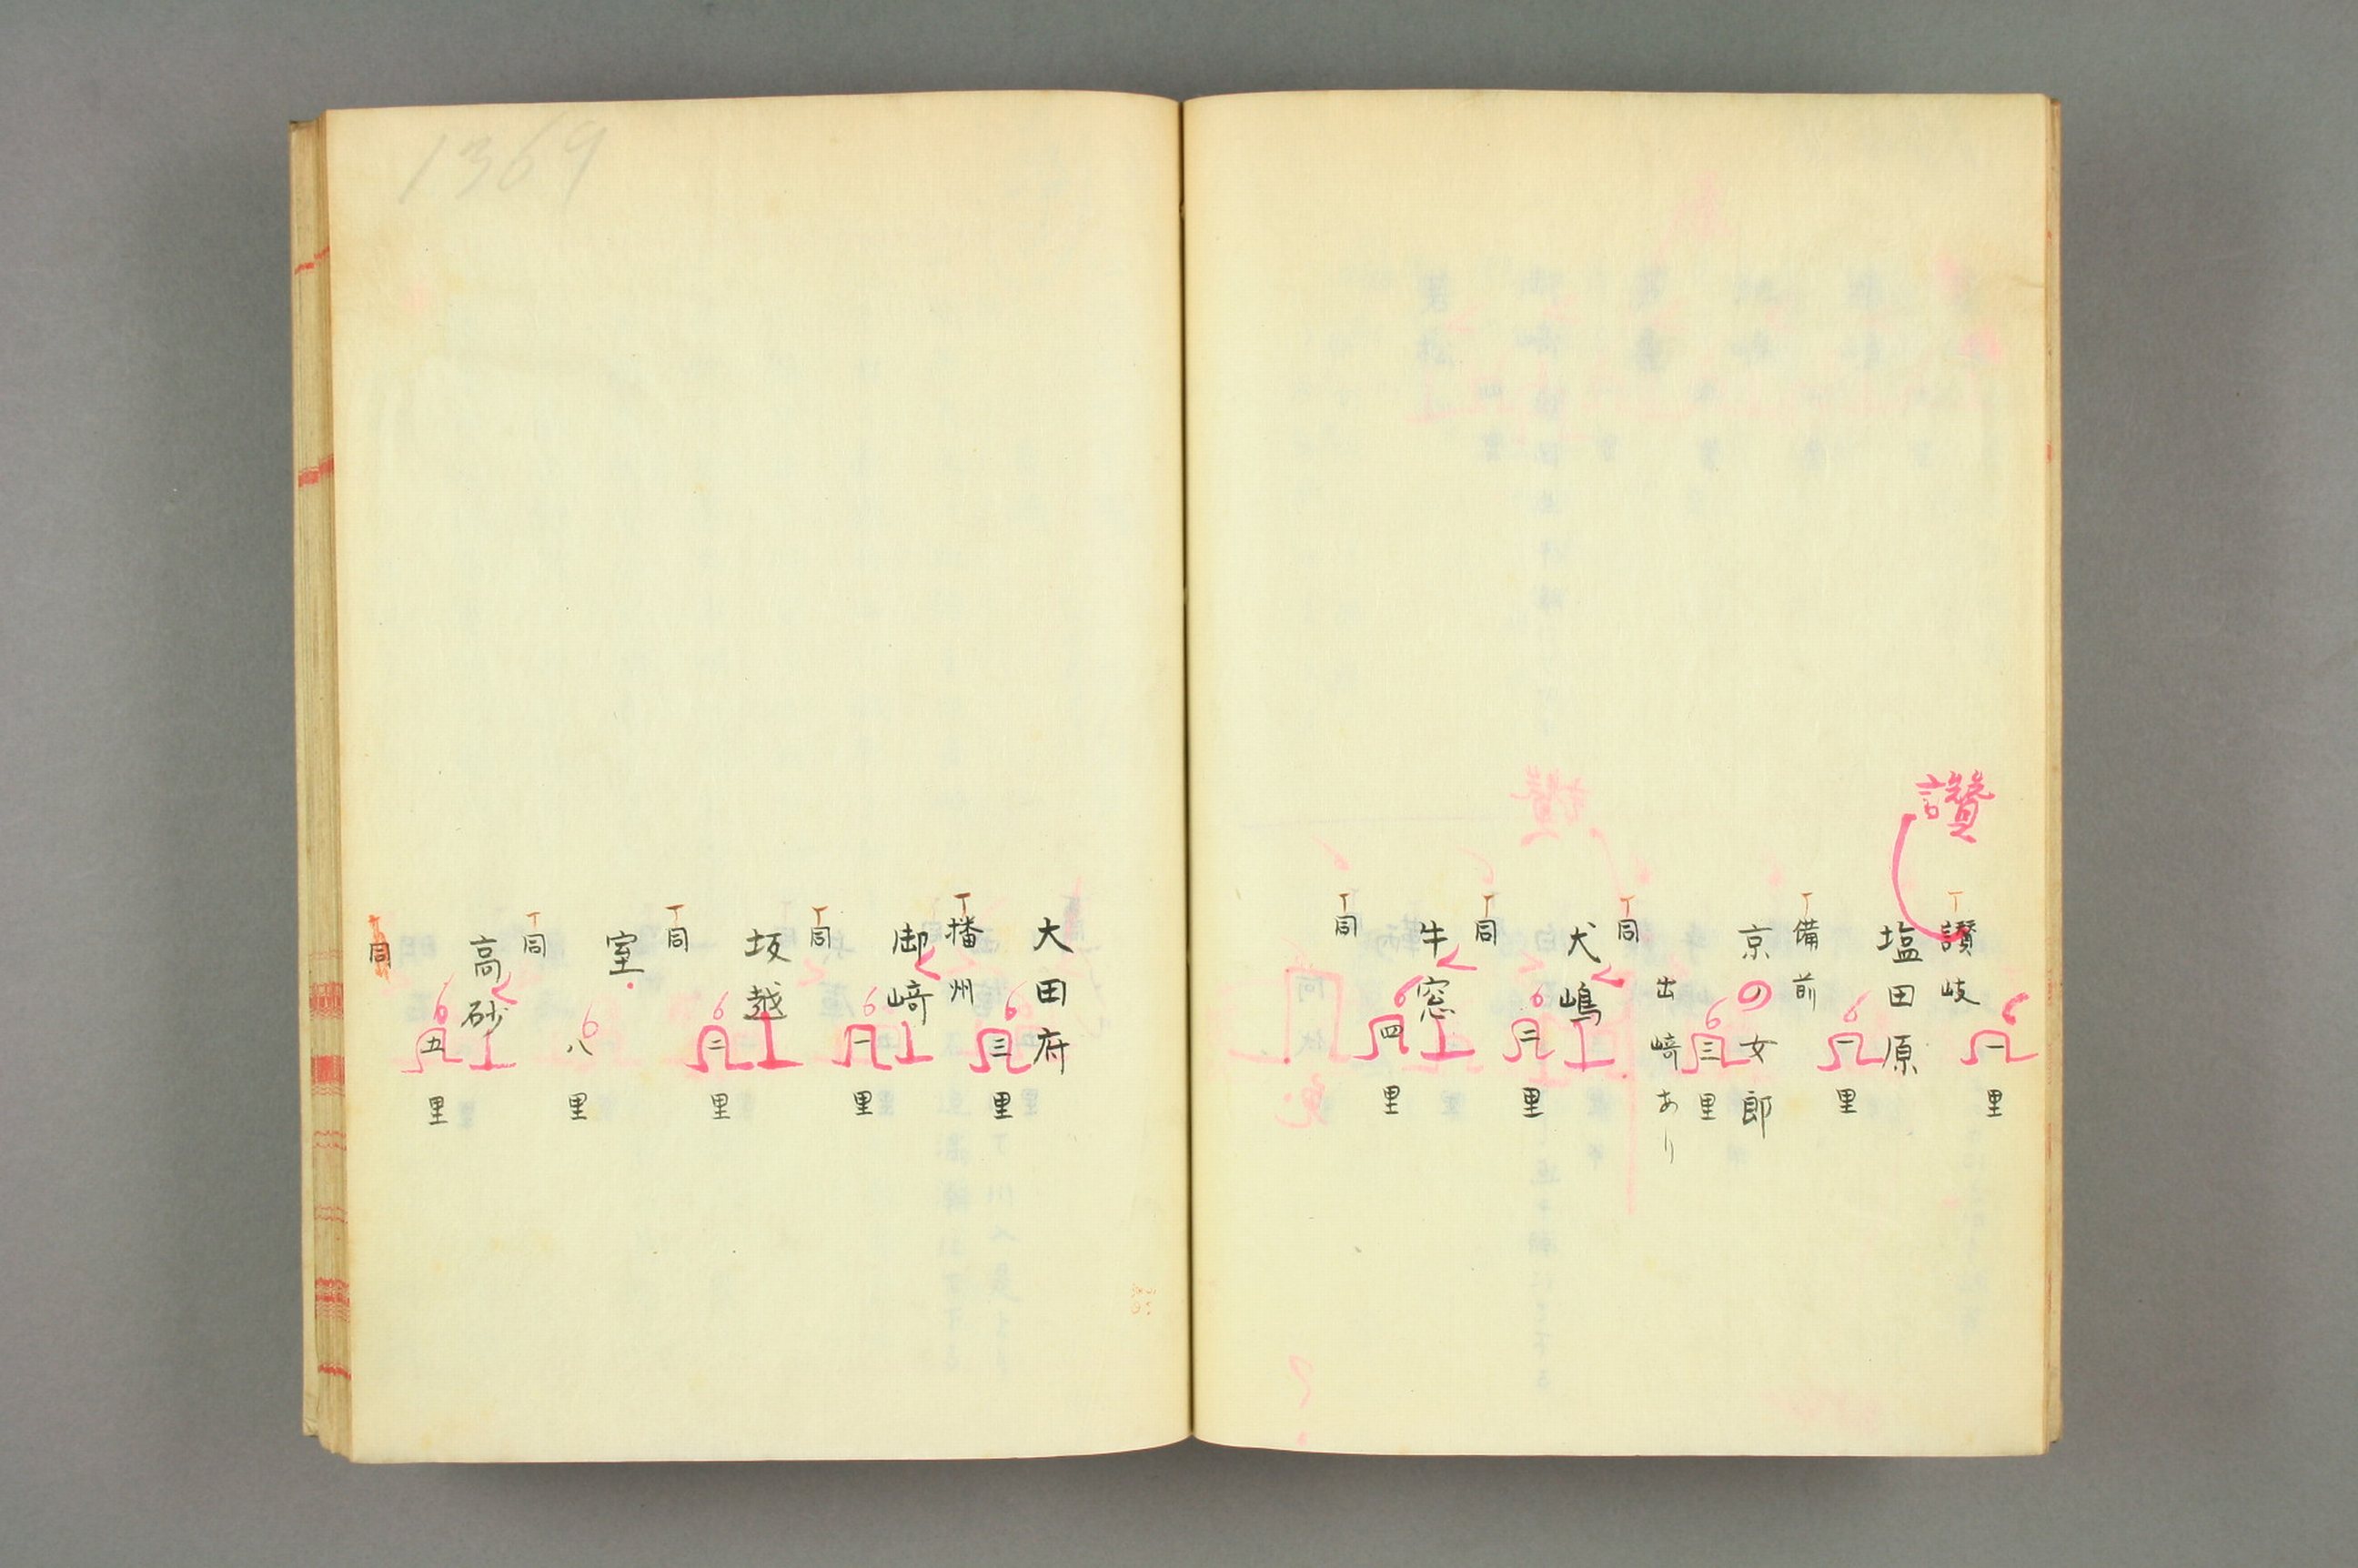 讃
一里
讃岐
塩田原
一里
備前
京の女郎
三里
出﨑あり
同
犬嶋
二里
同
牛窓
四里
同
大田府
三里
播州
御﨑
一里
同
坂越
二里
同
室
八里
同
高砂
五里
同
1369